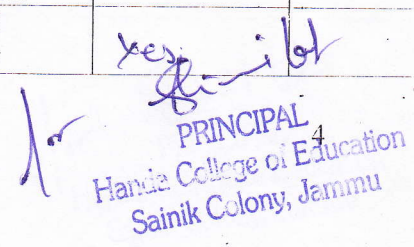 Yes
for
PRINCIPAL
4
Handa College of Education
Sainik Colony, Jammu